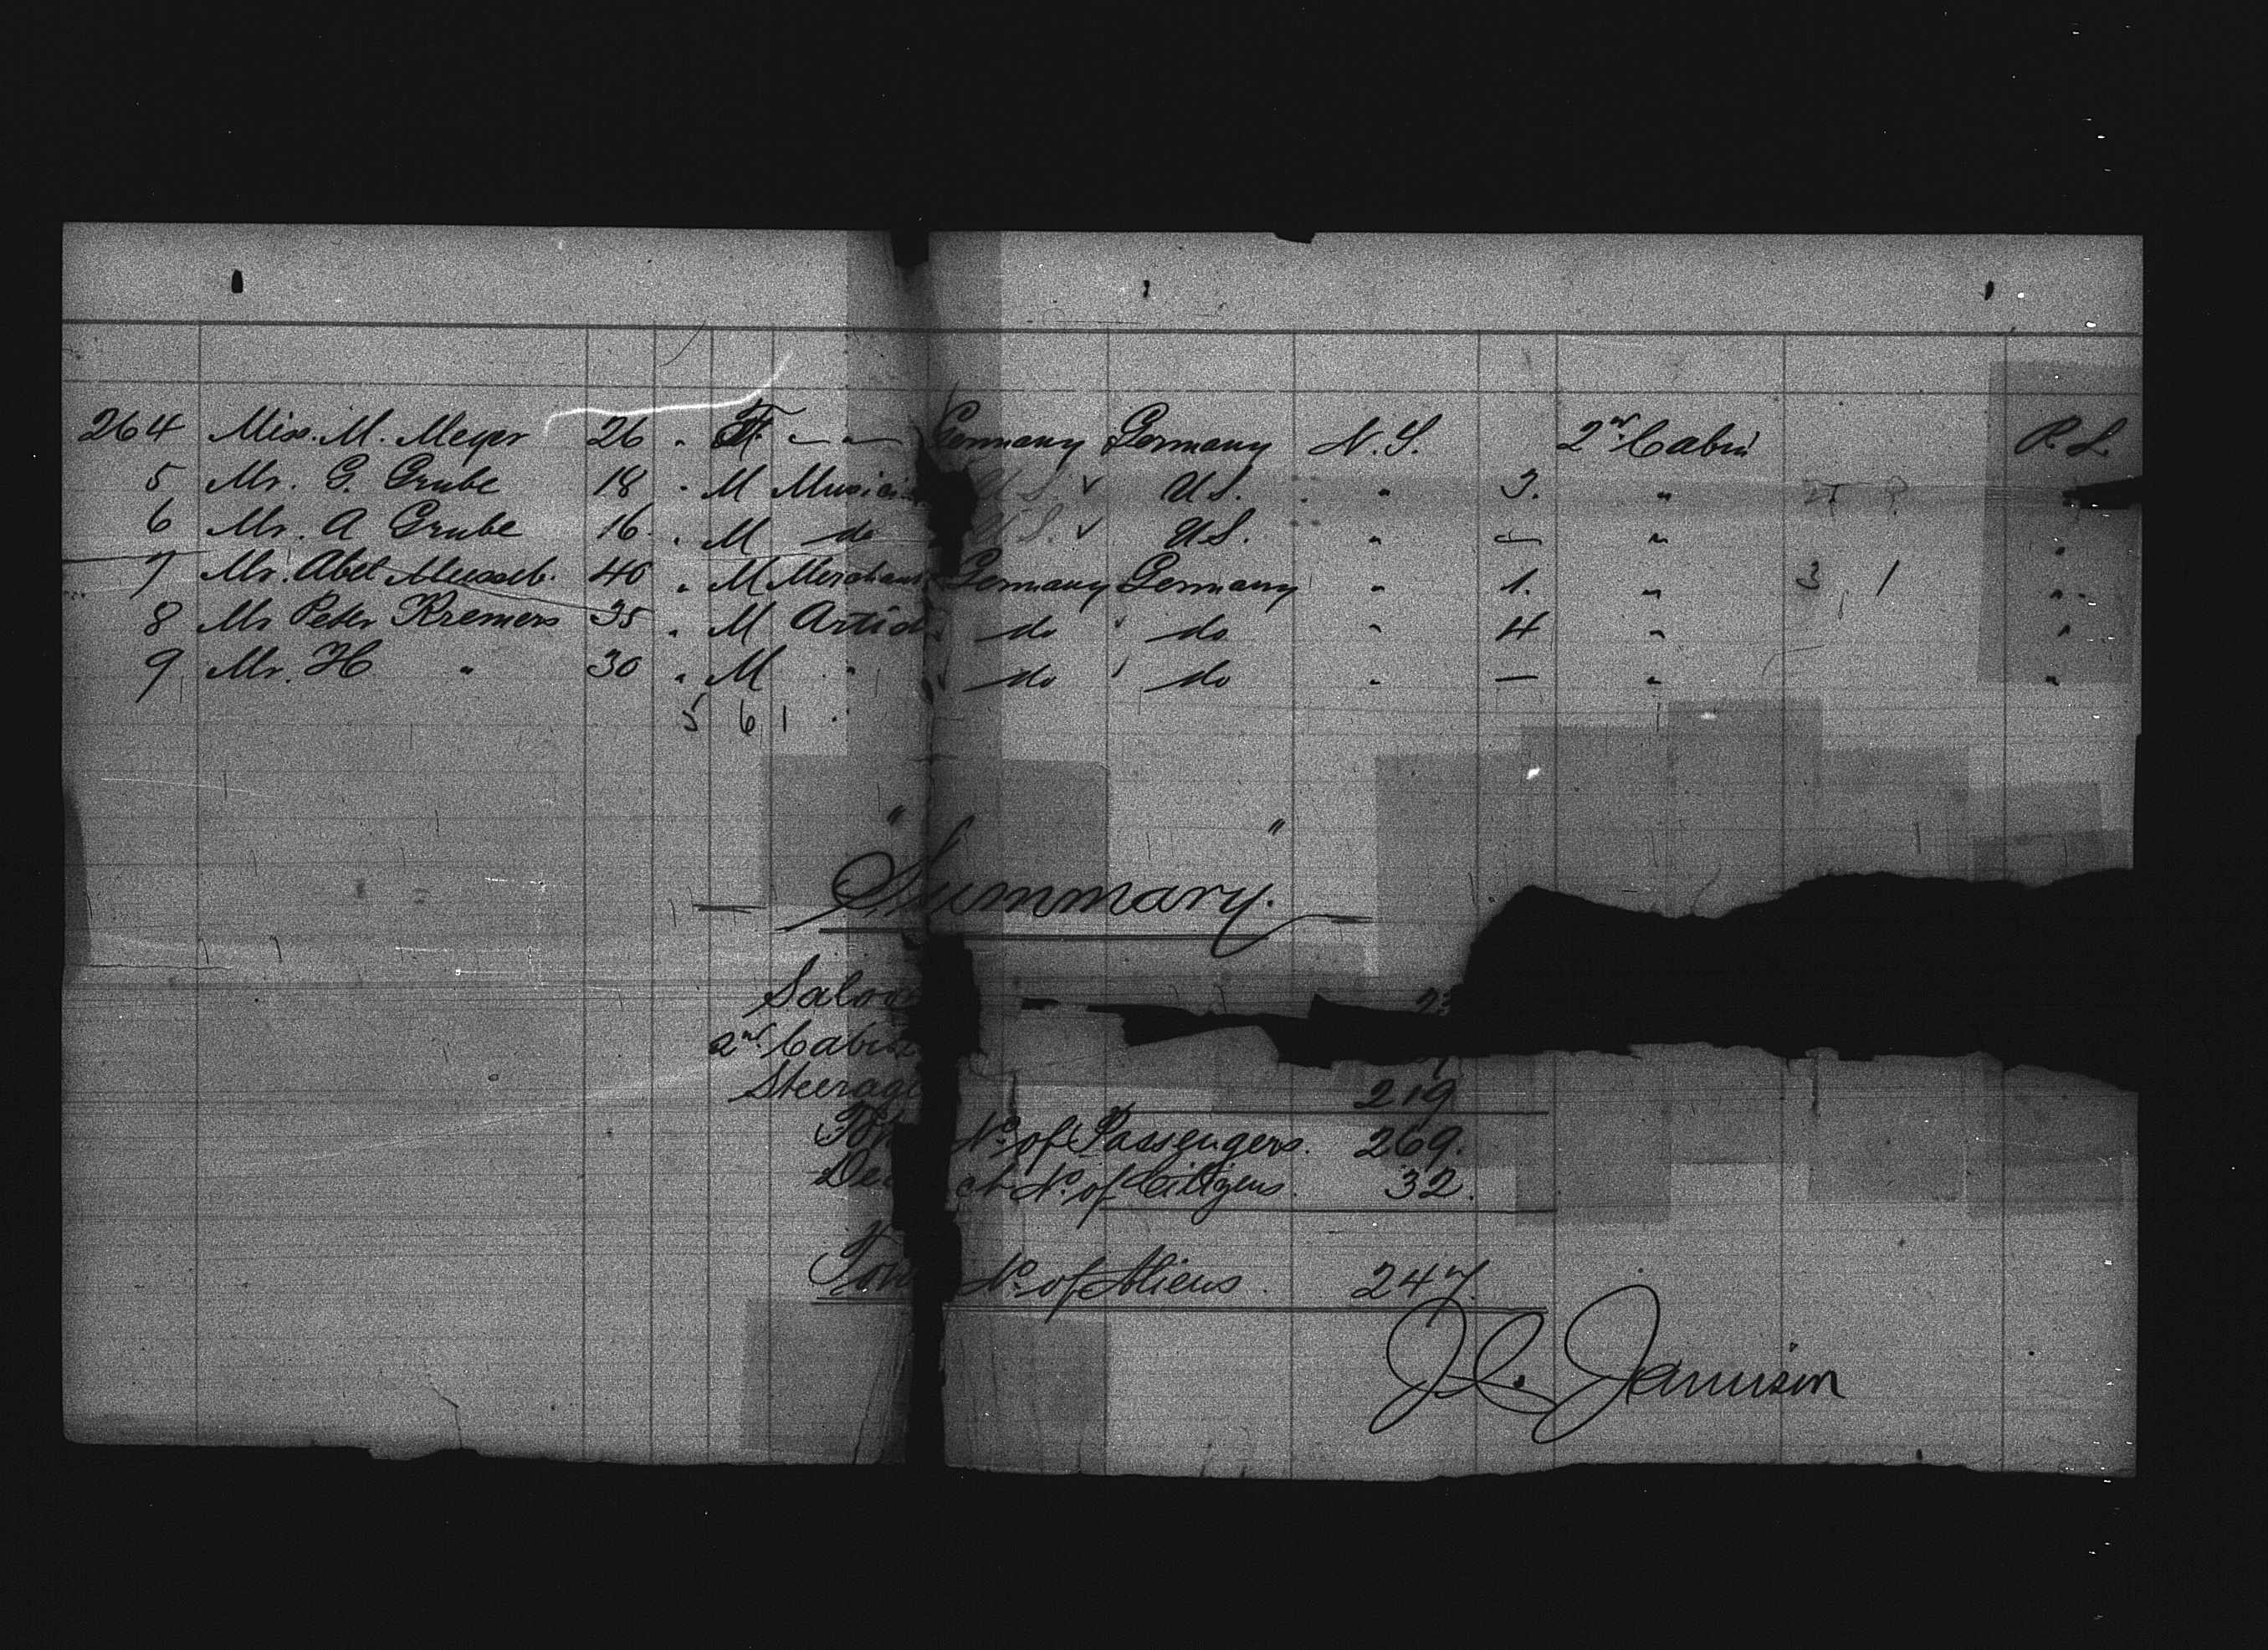 264 Miss. M. Meyer 26 " F. — " — Germany Germany N.Y. 2nd Cabin P. L.
5 Mr. G. Grube 18 " M Musici U.S. ✓ U.S. " 3. " "
6 Mr. A Grube 16 " M do U.S. ✓ U.S. " — " "
7 Mr. Abel 40 " M Merchant Germany Germany " 1. " 3 1 "
8 Mr Peter Kremers 35 " M Artist do do " 4 " "
9 Mr. H " 30 " M " do do " — " "
5 6 1
"Summary."
Saloo 23
2nd Cabin
Steerage 219
Tot No. of Passengers. 269.
De ct No. of Citizens. 32.
Tot No. of Aliens 247.
J C. Jamison